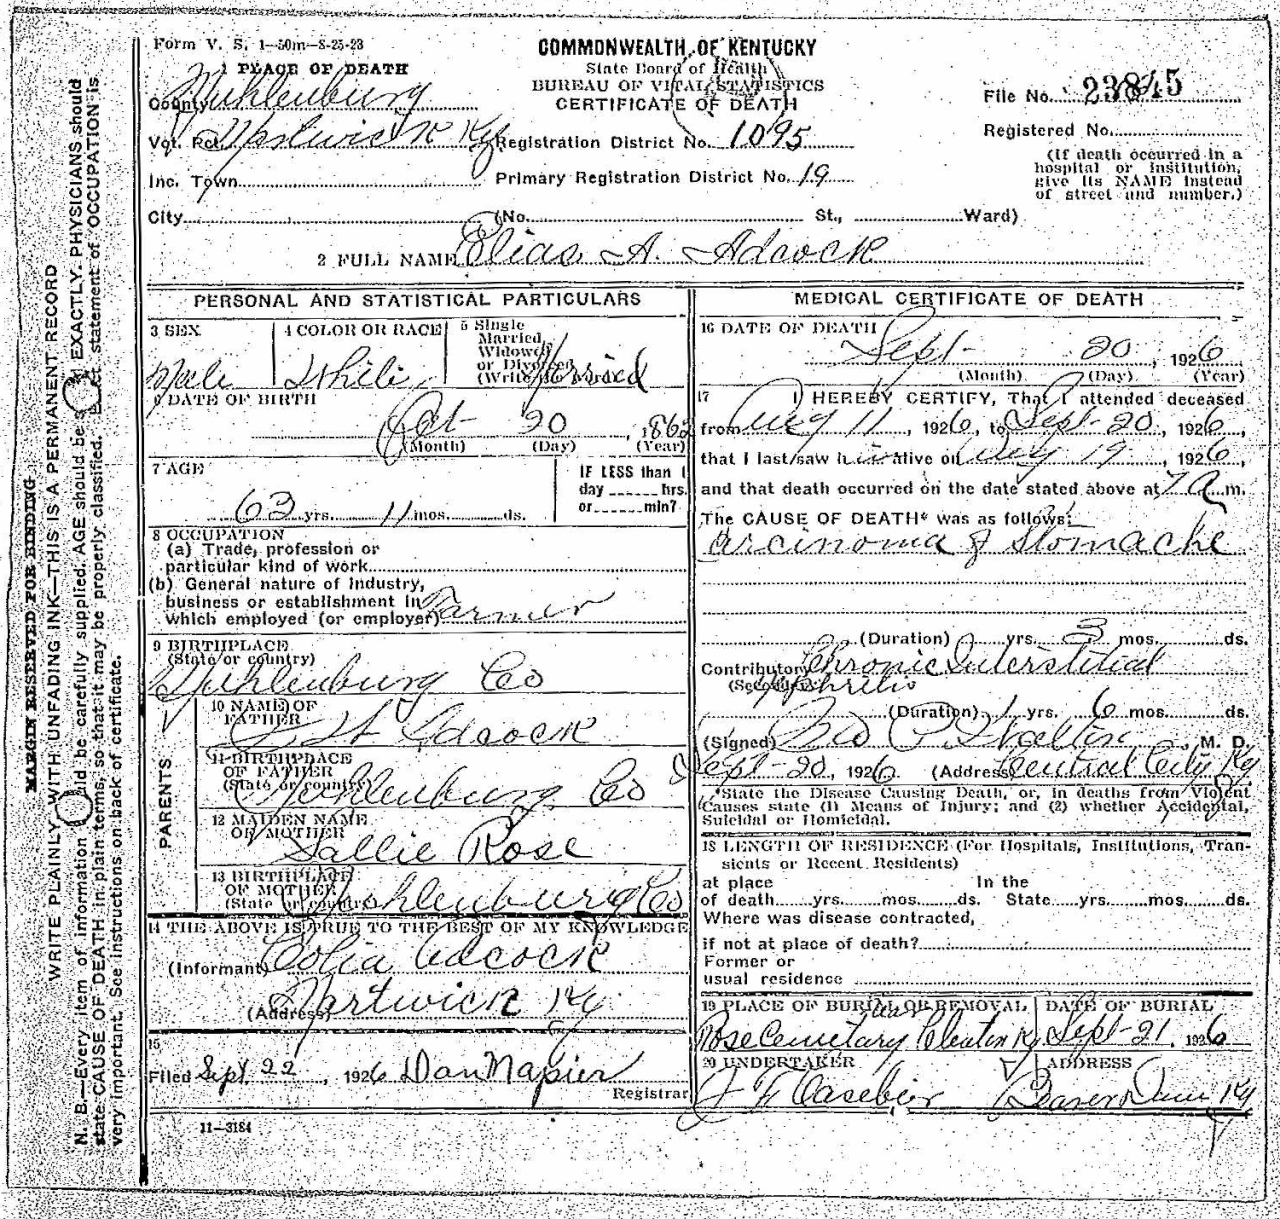 Form V. S. 1—50m—8-25-23
COMMONWEALTH OF KENTUCKY
State Board of Health
BUREAU OF VITAL STATISTICS
CERTIFICATE OF DEATH
1 PLACE OF DEATH
County Muhlenburg
Vot. Pct. Hartwick Ky
Inc. Town
City (No. St., Ward)
Registration District No. 1095
Primary Registration District No. 19
File No. 23845
Registered No.
(If death occurred in a
hospital or institution,
give its NAME instead
of street and number.)
2 FULL NAME Elias A. Adcock
PERSONAL AND STATISTICAL PARTICULARS
3 SEX
Male
4 COLOR OR RACE
White
5 Single
Married
Widowed
or Divorced
(Write the word)
Married
6 DATE OF BIRTH
Oct 20, 1862
(Month) (Day) (Year)
7 AGE
63 yrs. 11 mos. ds.
IF LESS than 1
day hrs.
or min?
8 OCCUPATION
(a) Trade, profession or
particular kind of work
(b) General nature of Industry,
business or establishment in
which employed (or employer) Farmer
9 BIRTHPLACE
(State or country)
Muhlenburg Co
PARENTS
10 NAME OF
FATHER
Adcock
11 BIRTHPLACE
OF FATHER
(State or country)
Muhlenburg Co
12 MAIDEN NAME
OF MOTHER
Sallie Rose
13 BIRTHPLACE
OF MOTHER
(State or country)
Muhlenburg Co
14 THE ABOVE IS TRUE TO THE BEST OF MY KNOWLEDGE
(Informant) Adcock
(Address) Hartwick Ky.
15
Filed Sept 22, 1926 Dan Napier
Registrar
11—3184
MEDICAL CERTIFICATE OF DEATH
16 DATE OF DEATH
Sept 20, 1926
(Month) (Day) (Year)
17 I HEREBY CERTIFY, That I attended deceased
from Aug 11, 1926, to Sept-20, 1926,
that I last saw him alive on Aug 19, 1926,
and that death occurred on the date stated above at 7 a m.
The CAUSE OF DEATH* was as follows:
Carcinoma of Stomache
(Duration) yrs. 3 mos. ds.
Contributory Chronic Interstitial
(Secondary) Nephritis
(Duration) 1 yrs. 6 mos. ds.
(Signed) M. D.
Sept-20, 1926. (Address) Central City Ky
*State the Disease Causing Death, or, in deaths from Violent
Causes state (1) Means of Injury; and (2) whether Accidental,
Suicidal or Homicidal.
18 LENGTH OF RESIDENCE (For Hospitals, Institutions, Tran-
sients or Recent Residents)
at place In the
of death yrs. mos. ds. State yrs. mos. ds.
Where was disease contracted,
if not at place of death?
Former or
usual residence
19 PLACE OF BURIAL OR REMOVAL
Rose Cemetary Cleaton Ky
DATE OF BURIAL
Sept-21, 1926
20 UNDERTAKER
J F Casebier
ADDRESS
Beaver Dam Ky
MARGIN RESERVED FOR BINDING
WRITE PLAINLY, WITH UNFADING INK—THIS IS A PERMANENT RECORD
N. B.—Every item of information should be carefully supplied. AGE should be stated EXACTLY. PHYSICIANS should
state CAUSE OF DEATH in plain terms, so that it may be properly classified. Exact statement of OCCUPATION is
very important. See instructions on back of certificate.